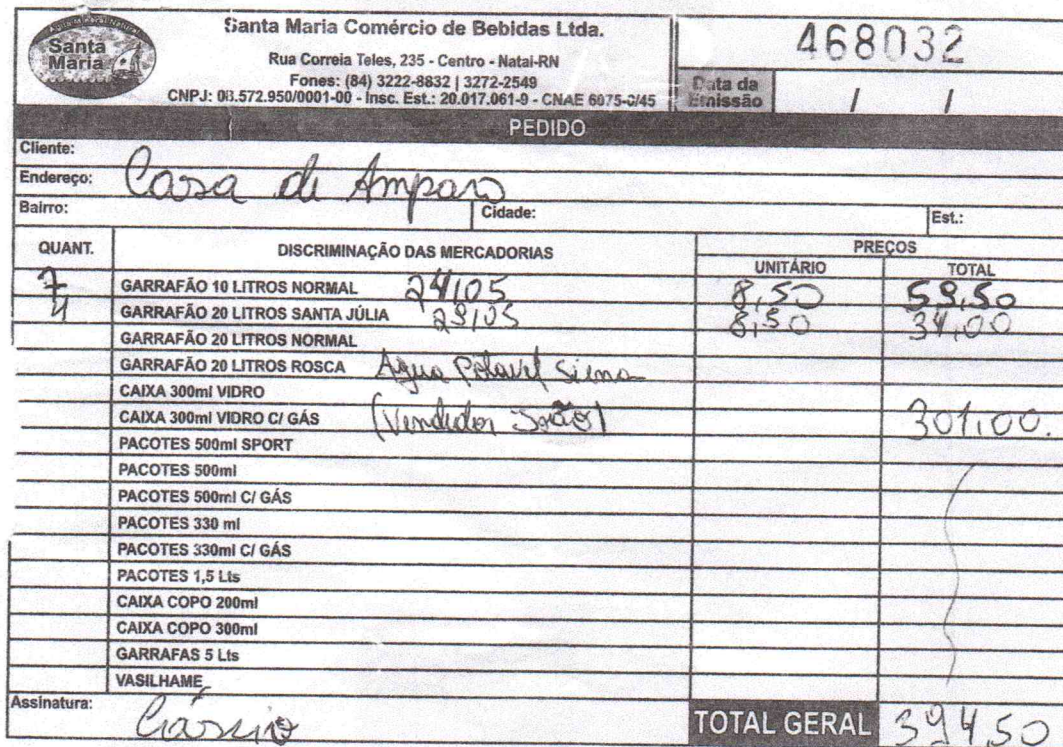 Água Mineral Natural
Santa Maria
Santa Maria Comércio de Bebidas Ltda.
Rua Correia Teles, 235 - Centro - Natal-RN
Fones: (84) 3222-8832 | 3272-2549
CNPJ: 08.572.950/0001-00 - Insc. Est.: 20.017.061-9 - CNAE 6075-0/45
468032
Data da Emissão / /
PEDIDO
Cliente:
Endereço: Casa de Amparo
Bairro: Cidade: Est.:
QUANT. DISCRIMINAÇÃO DAS MERCADORIAS PREÇOS
UNITÁRIO TOTAL
7 GARRAFÃO 10 LITROS NORMAL 24/05 8,50 59,50
4 GARRAFÃO 20 LITROS SANTA JÚLIA 29/05 8,50 34,00
GARRAFÃO 20 LITROS NORMAL
GARRAFÃO 20 LITROS ROSCA Água Potável
CAIXA 300ml VIDRO
CAIXA 300ml VIDRO C/ GÁS (Vendedor João) 301,00.
PACOTES 500ml SPORT
PACOTES 500ml
PACOTES 500ml C/ GÁS
PACOTES 330 ml
PACOTES 330ml C/ GÁS
PACOTES 1,5 Lts
CAIXA COPO 200ml
CAIXA COPO 300ml
GARRAFAS 5 Lts
VASILHAME
Assinatura: Cássio TOTAL GERAL 394,50